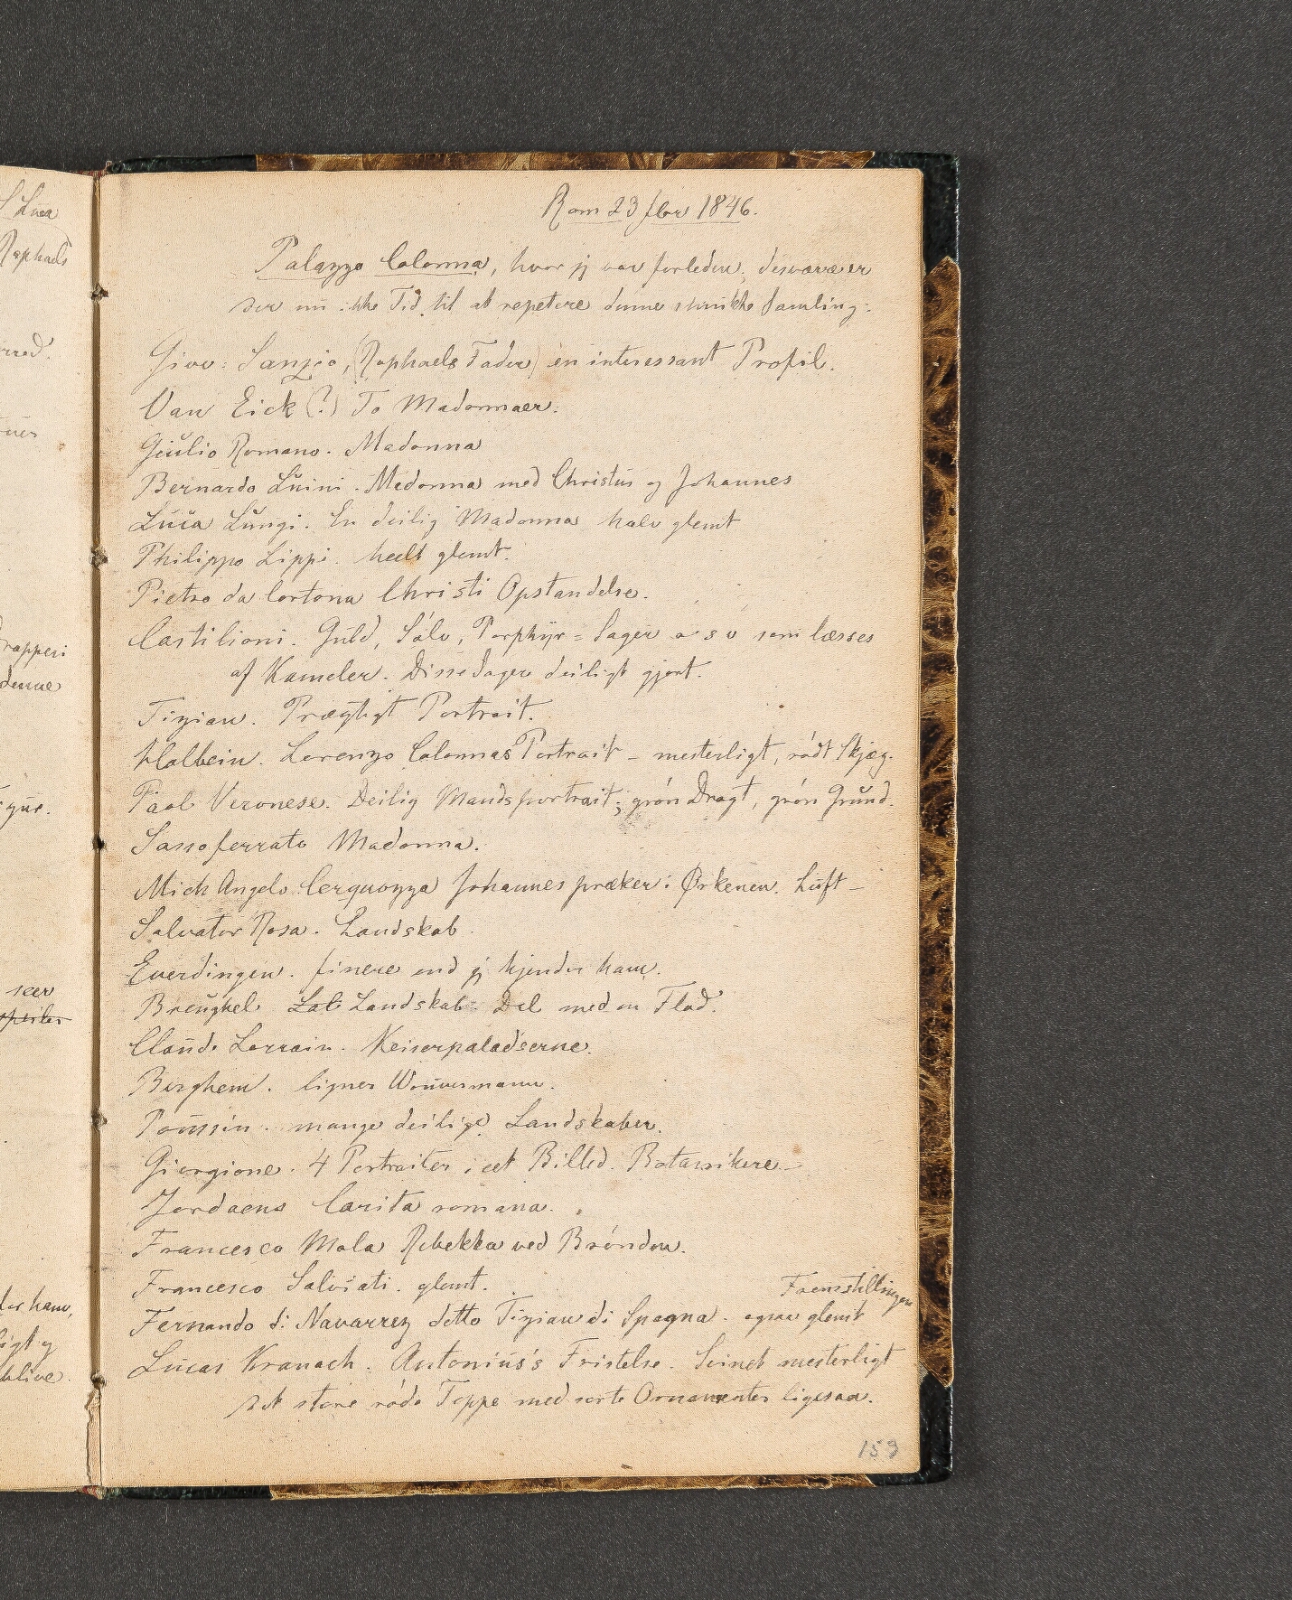 S Luca
Raphaels
Drapperi
denne
seer
Rom 23 fbr 1846.
Palazzo Colonna, hvor jj var forleden, desværre er
der nu ikke Tid til at repetere denne smukke Samling.
Giov: Sanzio, (Raphaels Fader) en interessant Profil.
Van Eick (?) To Madonnaer.
Giulio Romano. Madonna
Bernardo Luini. Madonna med Christus og Johannes
Luca Lungi. En deilig Madonna halv glemt
Philippo Lippi. heelt glemt.
Pietro da Cortona Christi Opstandelse.
Castilioni. Guld, Sólv, Porphyr-Sager o s v som læsses
af Kameler. Disse Sager deiligt gjort.
Tizian. Prægtigt Portrait.
Holbein. Lorenzo Colonnas Portrait - mesterligt, ródt Skjæg.
Paol Veronese. Deilig Mandsportrait; grón Dragt, grón Grund.
Sassoferrato Madonna.
Mich Angelo Cerquozza Johannes præker i Ørkenen. Luft -
Salvator Rosa. Landskab
Everdingen. finere end jj kjender ham.
Breughel Lat Landskab- Del med en Flod.
Claude Lorrain. Keiserpaladserne.
Berghem. ligner Wouvermann.
Poussin. mange deilige Landskaber.
Giorgione. 4 Portraiter i eet Billed. Botanikere -
Jordaens Carita romana.
Francesco Mola Rebekka ved Brónden.
Francesco Salviati. glemt.
Fremstillingen
Fernando di Navarrez detto Tizian di Spagna. ogsaa glemt
Lucas Kranach. Antonius's Fristelse. Svinet mesterligt
det store róde Teppe med sorte Ornamenter ligesaa.
153